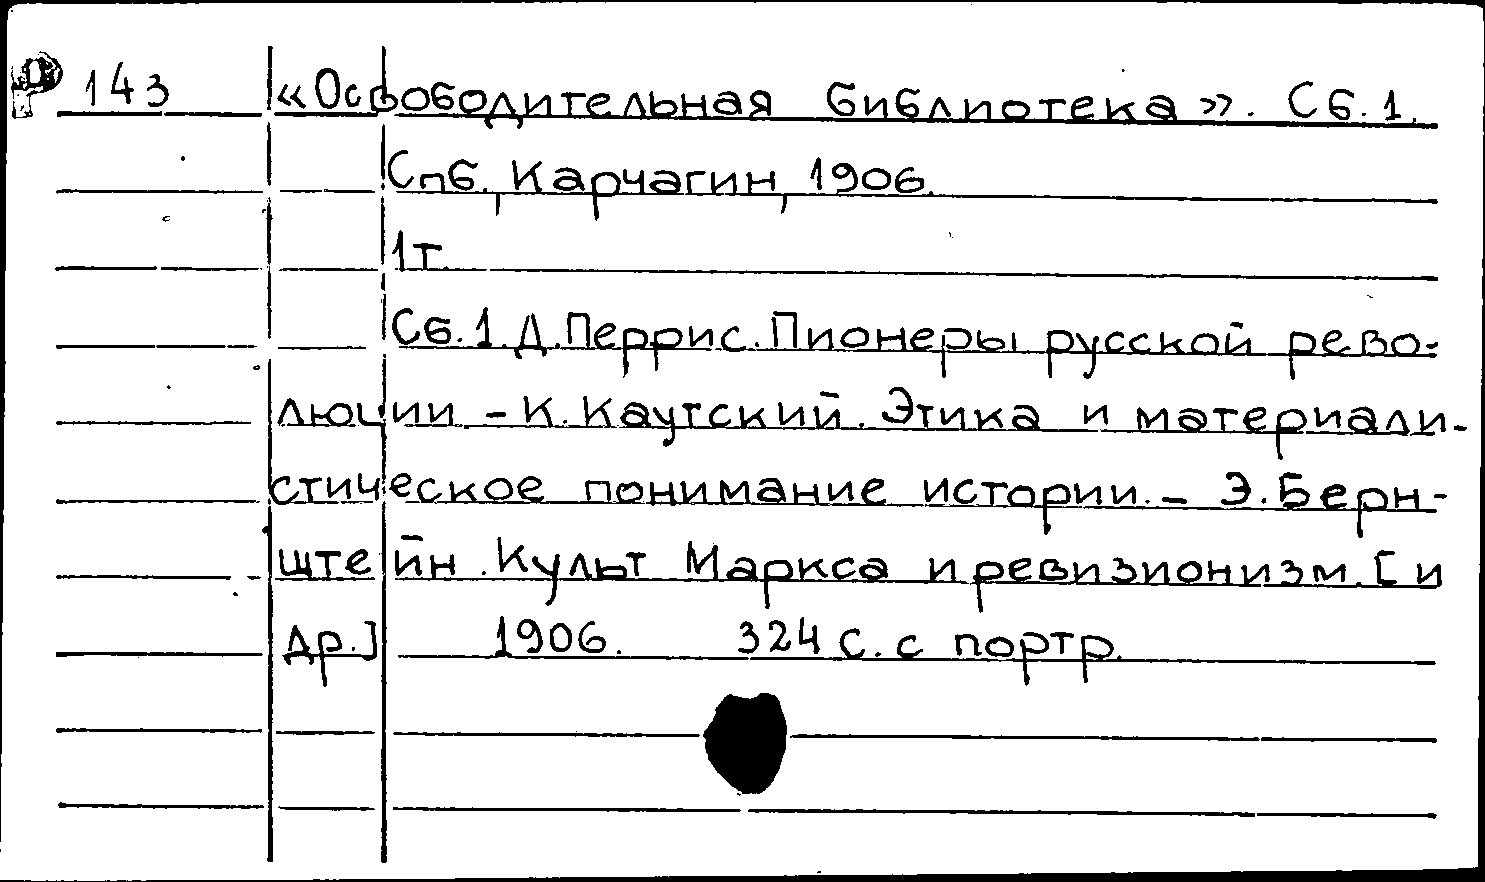 143 «Освободительная библиотека». Сб. 1.
Спб., Карчагин, 1906.
1т.
Сб. 1. Д. Перрис. Пионеры русской рево-
люции. - К. Каутский. Этика и материали-
стическое понимание истории. - Э. Берн-
штейн. Культ Маркса и ревизионизм. [и
др.] 1906. 324 с. с портр.